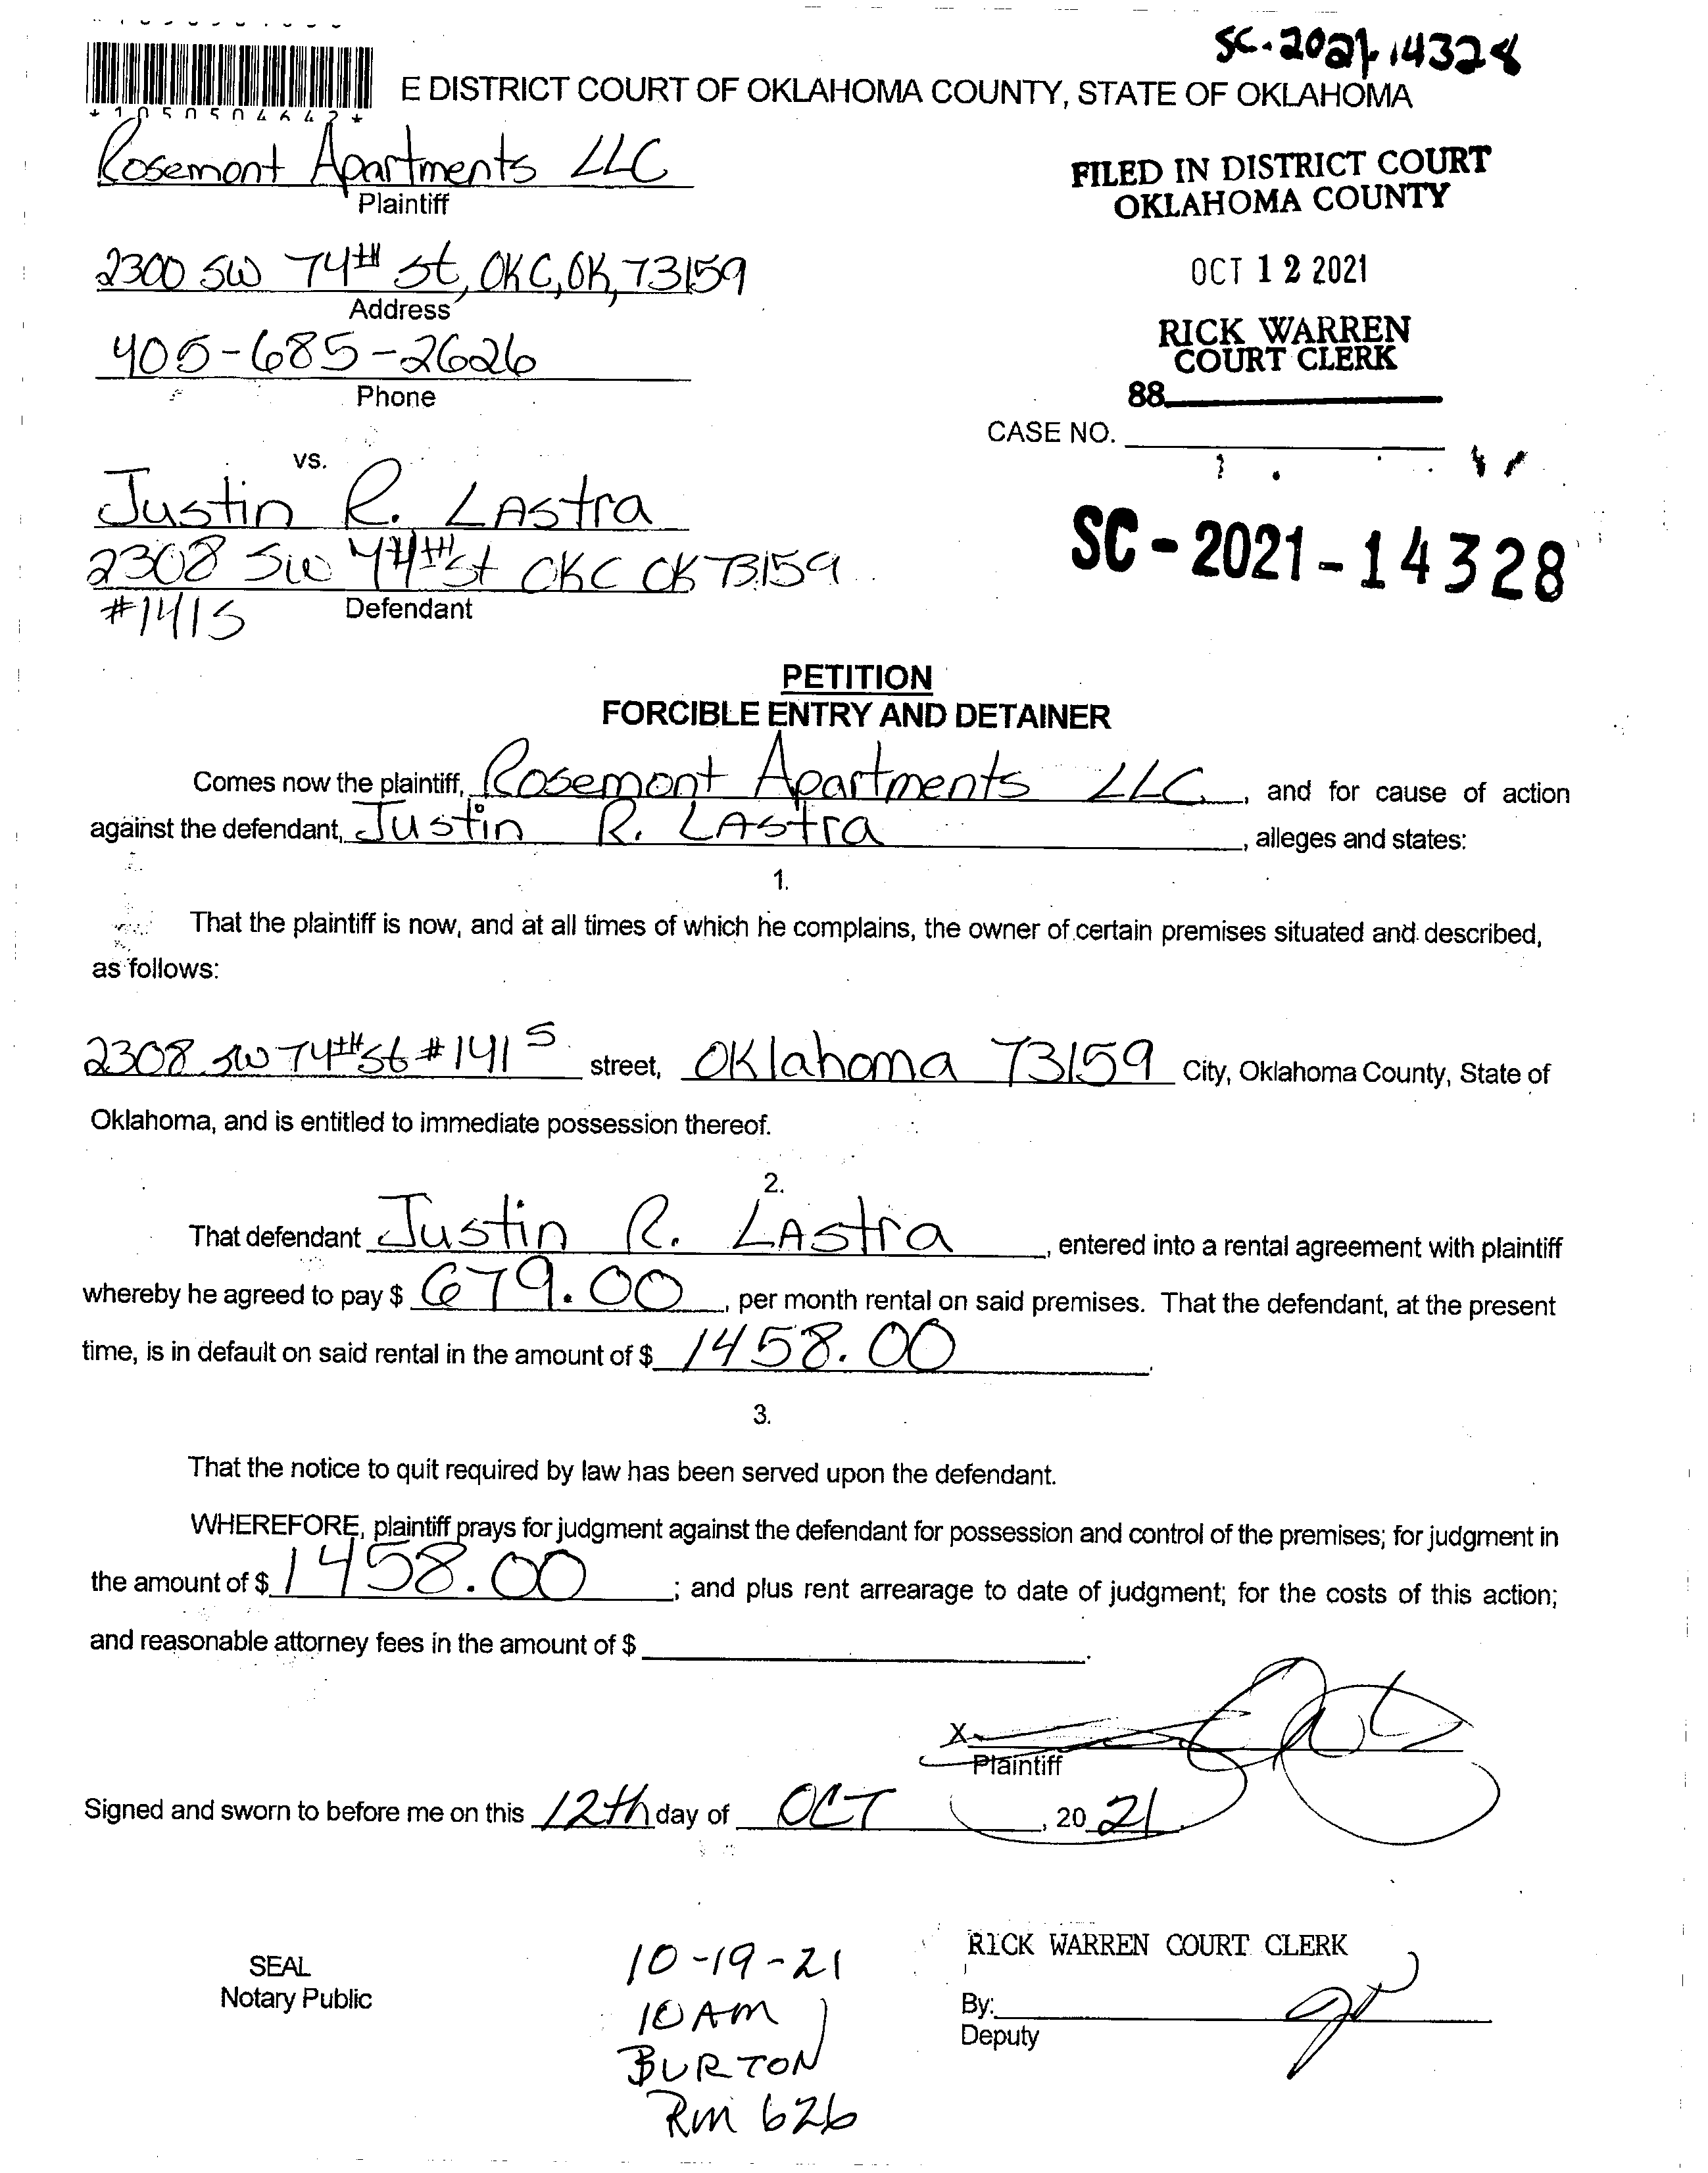 SC-2021-14328
*1050504642*
E DISTRICT COURT OF OKLAHOMA COUNTY, STATE OF OKLAHOMA
Rosemont Apartments LLC
Plaintiff
FILED IN DISTRICT COURT
OKLAHOMA COUNTY
2300 SW 74TH St, OKC, OK, 73159
Address
OCT 12 2021
405-685-2626
Phone
RICK WARREN
COURT CLERK
88
CASE NO.
vs.
Justin R. LAstra
2308 SW 44TH St OKC OK 73159
#141S
Defendant
SC-2021-14328
PETITION
FORCIBLE ENTRY AND DETAINER
Comes now the plaintiff, Rosemont Apartments LLC, and for cause of action
against the defendant, Justin R. LAstra, alleges and states:
1.
That the plaintiff is now, and at all times of which he complains, the owner of certain premises situated and described,
as follows:
2308 SW 74TH St #141S street, OKlahoma 73159 City, Oklahoma County, State of
Oklahoma, and is entitled to immediate possession thereof.
2.
That defendant Justin R. LAstra, entered into a rental agreement with plaintiff
whereby he agreed to pay $ 679.00, per month rental on said premises. That the defendant, at the present
time, is in default on said rental in the amount of $ 1458.00.
3.
That the notice to quit required by law has been served upon the defendant.
WHEREFORE, plaintiff prays for judgment against the defendant for possession and control of the premises; for judgment in
the amount of $ 1458.00; and plus rent arrearage to date of judgment; for the costs of this action;
and reasonable attorney fees in the amount of $ .
X
Plaintiff
Signed and sworn to before me on this 12th day of OCT, 2021.
SEAL
Notary Public
10-19-21
10 AM
BURTON
Rm 626
RICK WARREN COURT CLERK
By:
Deputy